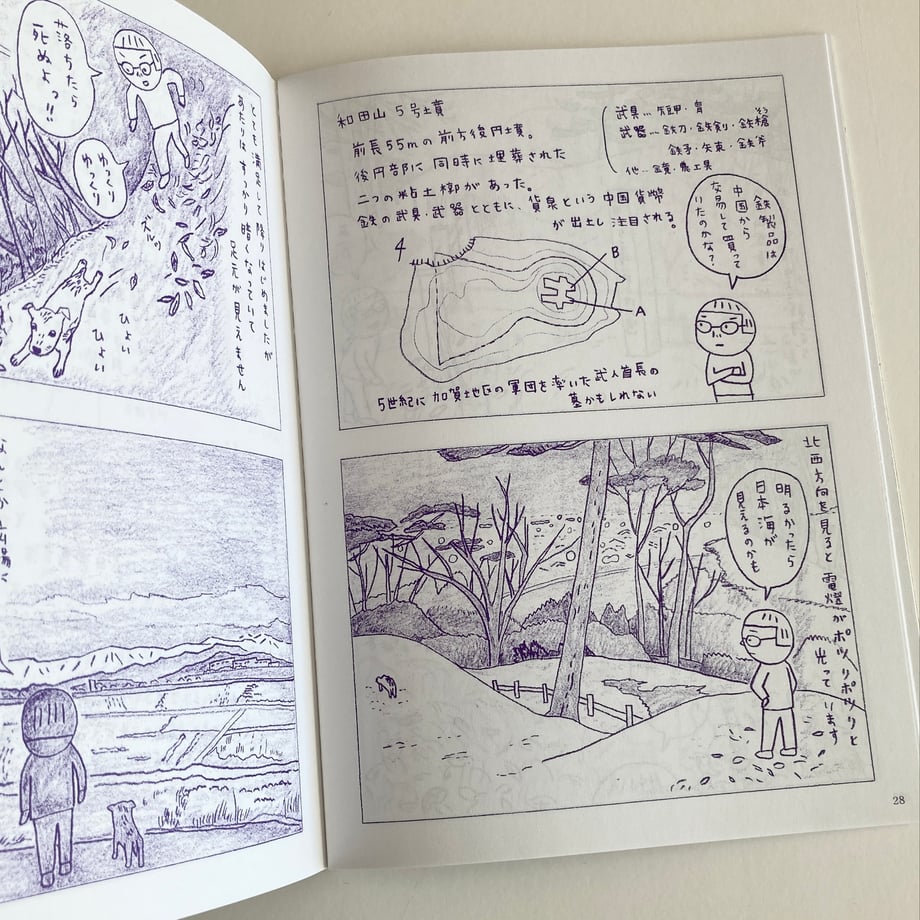 和田山5号土賁
前長55mの前方後円土賁。
後円部に同時に埋葬された
二つの粘土槨があった。
鉄の武具・武器とともに、貨泉という中国貨幣
が出土し注目される。
武具…短甲・冑
武器…鉄刀・鉄剣・鉄槍
鉄子・矢束・鉄斧
他…鏡・農工具
鉄製品は
中国から
交易して買って
いたのかな?
B
A
5世紀に加賀地区の軍団を率いた武人首長の
墓かもしれない
北西方向を見ると電燈がポツリポツリと
光っています
明るかったら
日本海が
見えるのかも
28
落ちたら
死ぬよっ!!
ゆっくり
ゆっくり
とても満足して降りはじめましたが
あたりはすっかり暗くなっていて
足元が見えません
ズルッ
ひょい
ひょい
なんとか